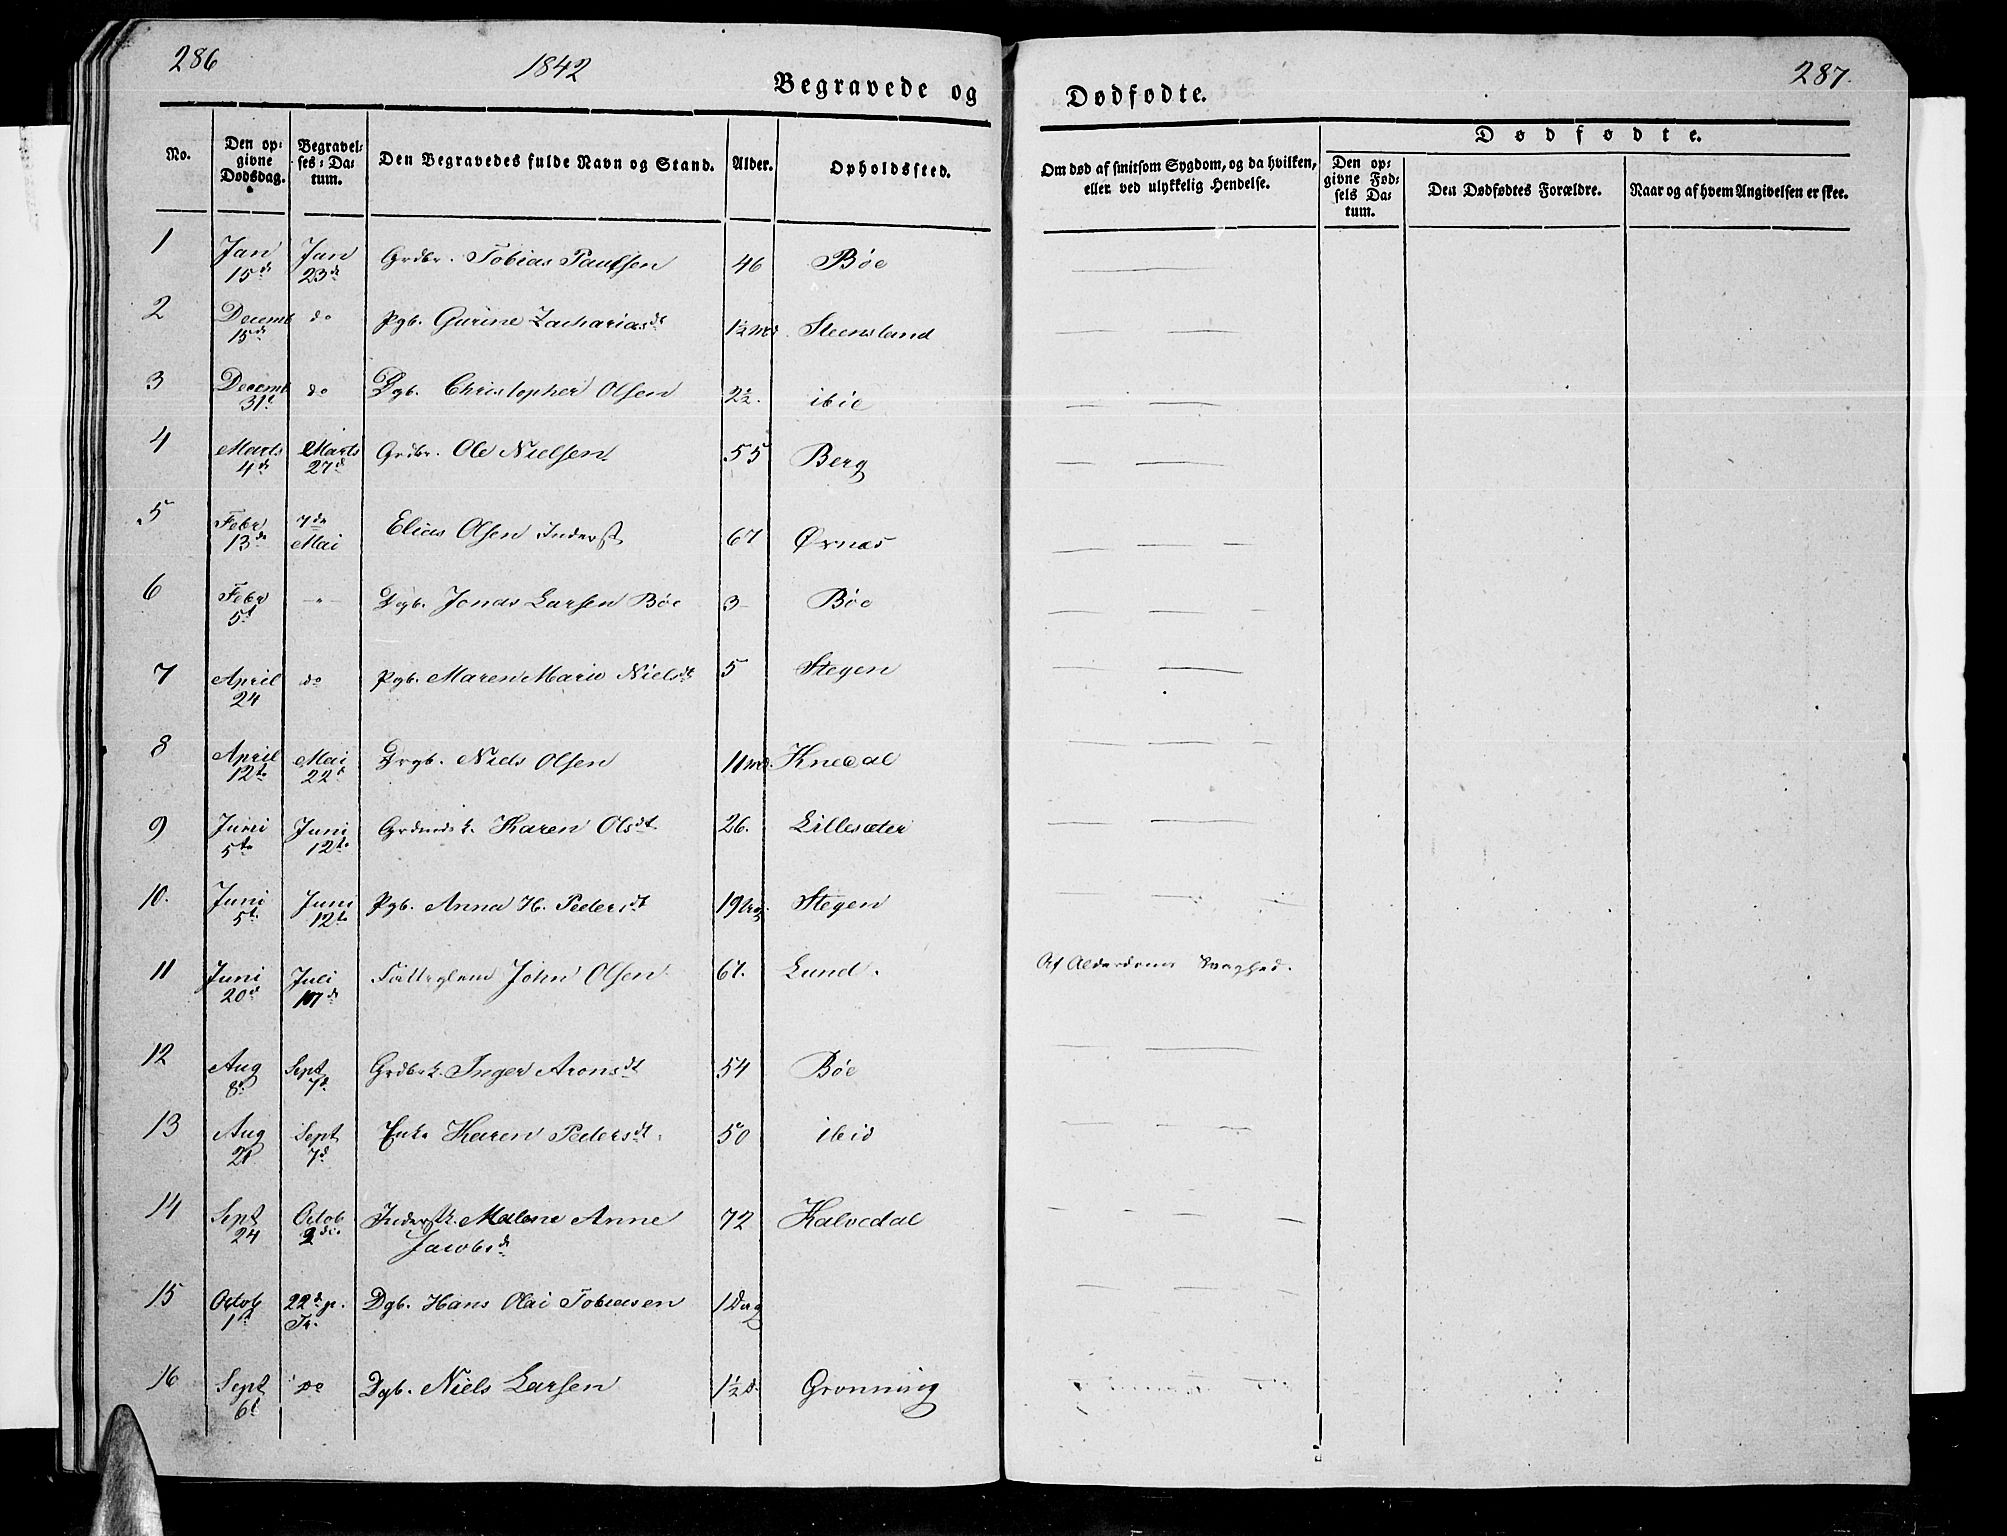 286
1842
Begravede og
Dødfødte.
287.
No.
Den op-
givne
Dødsdag.
Begravel-
ses-Da-
tum.
Den Begravedes fulde Navn og Stand.
Alder.
Opholdssted.
Om død af smitsom Sygdom, og da hvilken,
eller ved ulykkelig Hendelse.
Dødfødte.
Den op-
givne Fød-
sels Da-
tum.
Den Dødfødtes Forældre.
Naar og af hvem Angivelsen er skee.
1 Jan 15de Jan 23de Grdbr. Tobias Paulsen 46 Bøe
2 Decemb 15de do Pgb. Gurine Zachariasdt 1½ Md Steensland
3 Decemb 31te do Dgb. Christopher Olsen 2½. ibid
4 Marts 4de Marts 27de Grdbr. Ole Nielsen 55 Berg
5 Febr 13de 7de Mai Elias Olsen Inderst 67 Ørnæs
6 Febr 5te - " - Dgb. Jonas Larsen Bøe 3 Bøe
7 April 24 do Pgb. Maren Marie Nielsdt 5 Stegen
8 April 12te Mai 22de Drgb. Niels Olsen 11 Md. Knedal
9 Juni 5te Juni 12te Karen Olsdt 26. Lillesæter
10. Juni 5te Juni 12te Pgb. Anna H. Pedersdt 19 Stegen
11 Juni 20de Juli 17de Fattiglem John Olsen 67. Lund. Af Alderdoms Svaghed.
12 Aug 8de Sept 7de Grdbrk. Inger Aronsdt 54 Bøe
13 Aug 21 Sept 7de Enke Karen Pedersdt. 50 ibid
14 Sept 24 Octob 2den Inderstk. Malene Anne 72 Kalvedal
Jacobsdt
15 Octob 1ste 22de p. Tr. Dgb. Hans Olai Tobiasen 1 Dag
16 Sept 6te Do Dgb. Niels Larsen 1½ D. Grønning